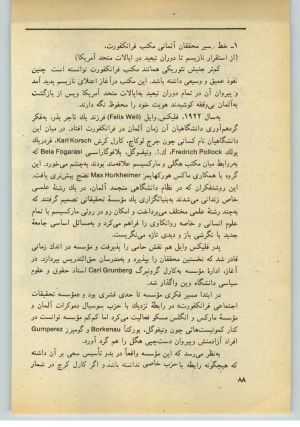 ۱ـ خط ـ سیر محققان آلمانی مکتب فرانکفورت،
(از استقرار نازیسم تا دوران تبعید در ایالات متحد آمریکا)
کم‌تر جنبش تئوریکی همانند مکتب فرانکفورت توانسته است چنین
نفوذ عمیق و وسیعی داشته باشد. این مکتب درآغاز اعتلای نازیسم پدید آمد
و پیروان آن در تمام دوران تبعید به‌ایالات متحد آمریکا و پس از بازگشت
به‌آلمان بی‌وقفه کوشیدند هویت خود را محفوظ نگه دارند.
به‌سال ۱۹۲۲، فلیکس‌وایل (Felix Weil) فرزند یک تاجر بذر، به‌فکر
گردهم‌آوری دانشگاهیان آن زمان آلمان در فرانکفورت افتاد. در میان این
دانشگاهیان نام کسانی چون جرج لوکاچ، کارل کرش Karl Korsch، فردریک
پولوک Fredrich Pollock، ا.ا. ویتفوگل، بلافوگاراسی Bela Fogarasi که
به‌روابط میان مکتب هگلی و مارکسیسم علاقه‌مند بودند به‌چشم می‌خورد. این
گروه با همکاری ماکس هورکهایمر Max Horkheimer نضج بیش‌تری یافت.
این روشنفکران که در نظام دانشگاهی منجمد آلمان، در یک رشتهٔ علمی
خاص زندانی می‌شدند به‌بنیانگزاری یک مؤسسهٔ تحقیقاتی تصمیم گرفتند که
به‌چند رشتهٔ علمی مختلف می‌پرداخت و امکان رو در روئی مارکسیسم با تمام
علوم انسانی و خاصه روانکاوی را فراهم می‌کرد و به‌مسائل اساسی جامعهٔ
جدید با نگرشی باز و دیدی تازه می‌نگریست.
پدر فلیکس وایل هم نقش حامی را پذیرفت و مؤسسه در اندک زمانی
قادر شد که نخستین محققان را بپذیرد و به‌مدرسان حق‌التدریس بپردازد. در
آغاز، ادارهٔ مؤسسه به‌کارل گرونبرگ Carl Grunberg استاد حقوق و علوم
سیاسی دانشگاه وین واگذار شد.
در ابتدا مسیر فکری مؤسسه تا حدی قشری بود و «مؤسسه تحقیقات
اجتماعی فرانکفورت» در رابطهٔ نزدیک با حزب سوسیال دموکرات آلمان و
مؤسسهٔ مارکس و انگلس مسکو فعالیت می‌کرد اما کم‌کم مؤسسه توانست در
کنار کمونیست‌هائی چون ویتفوگل، بورکنا Borkenau و گومپرز Gumperez
افراد آزادمنش و پیروان دست‌چپی هگل را هم گرد آورد.
به‌نظر می‌رسد که این مؤسسه واقعاً در بدو تأسیس سعی بر آن داشته
که هیچگونه رابطه یا حزب خاصی نداشته باشد و اگر کارل کرچ در شمار
۸۸